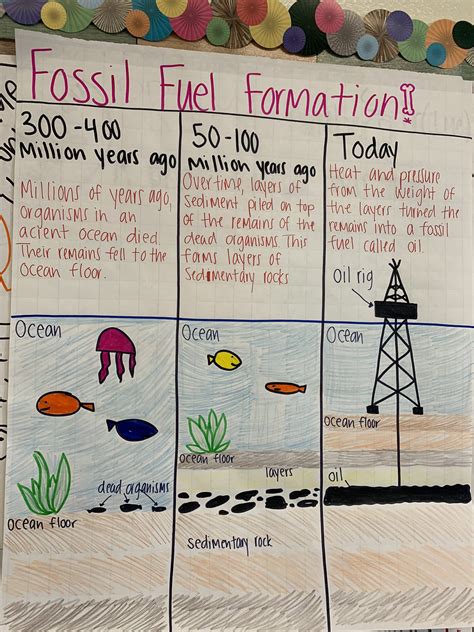 Fossil Fuel Formation!
300-400
Million years ago
Millions of years ago,
organisms in an
acient ocean died.
Their remains fell to the
Ocean floor.
50-100
Million years ago
Overtime, layers of
Sediment piled on top
of the remains of the
dead organisms. This
foms layers of
Sedimentary rocks
Today
Heat and pressure
from the weight of
the layers turned the
remains into a fossil
fuel called oil.
Oil rig
Ocean
dead organisms
Ocean floor
Ocean
Ocean floor
layers
Sedimentary rock
Ocean
Ocean floor
oil